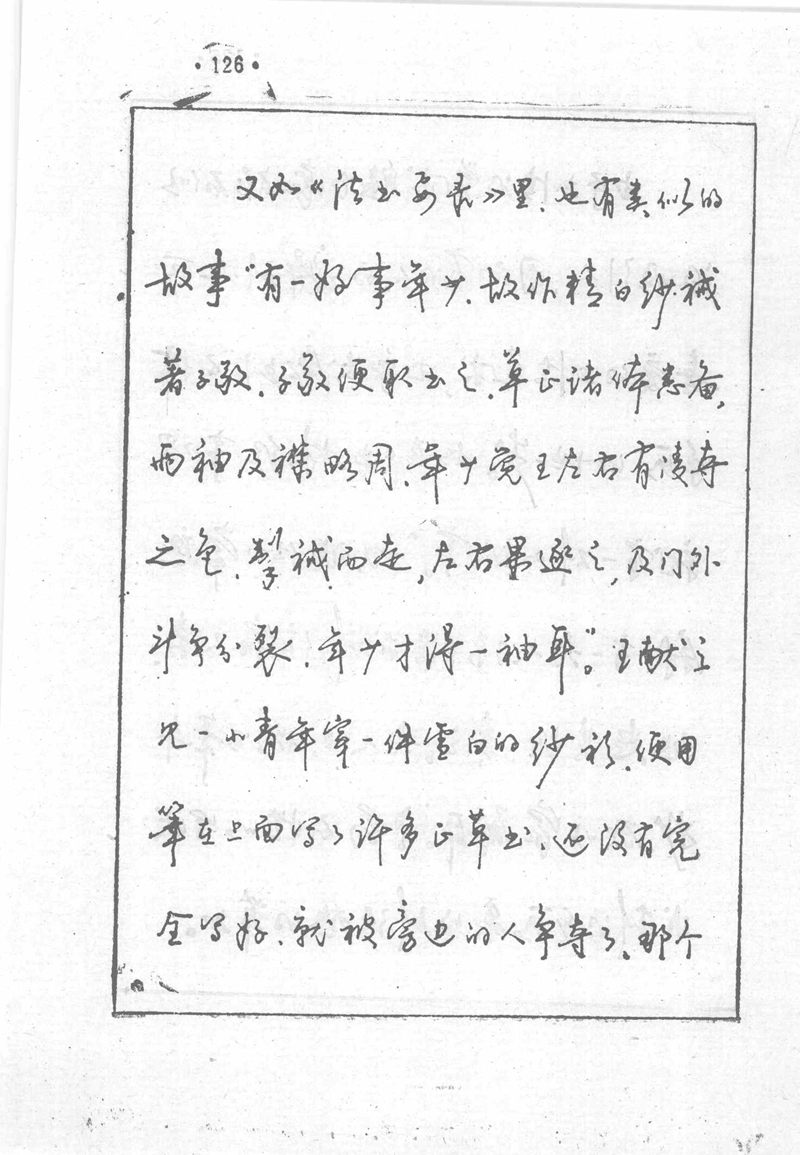 ·126·
又如《法书要录》里、也有类似的
故事“有一好事年少、故作精白纱裓
著子敬、子敬便取书之、草正诸体悉备，
两袖及襟略周、年少觉王左右有凌夺
之色、掣裓而走，左右果逐之，及门外
斗争分裂、年少才得一袖耳”。王献之
见一小青年穿一件雪白的纱衫、便用
笔在上面写了许多正草书、还没有完
全写好、就被旁边的人争夺了、那个